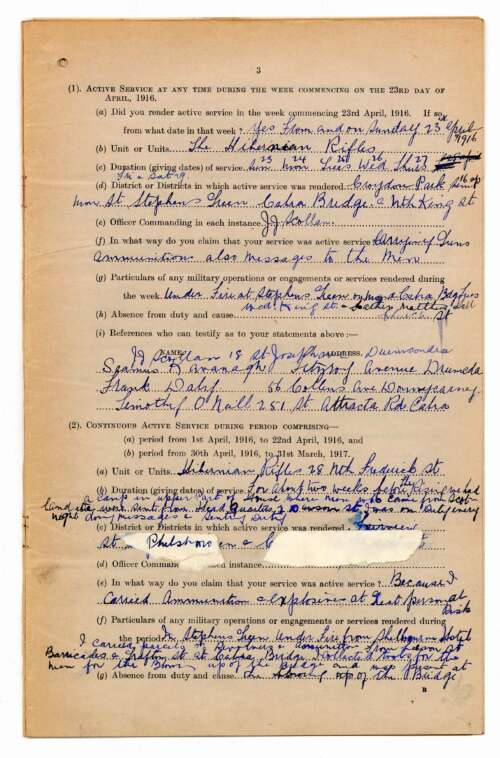 3
(1). ACTIVE SERVICE AT ANY TIME DURING THE WEEK COMMENCING ON THE 23RD DAY OF
APRIL, 1916.
(a) Did you render active service in the week commencing 23rd April, 1916. If so,
from what date in that week? Yes From and on Sunday 23 April
1916
(b) Unit or Units. The Hibernian Rifles
(c) Duration (giving dates) of service. Sun 23 Mon 24 Tues 25 Wed 26 Thurs 27
Fri & Sat 29
(d) District or Districts in which active service was rendered. Croydon Park
Mon St Stephens Green Cabra Bridge & Nth King St
(e) Officer Commanding in each instance. JJ Scollan
(f) In what way do you claim that your service was active service? Carrying of Guns
Ammunition also messages to the Men
(g) Particulars of any military operations or engagements or services rendered during
the week. Under Fire at Stephens Green on Mon & Cabra Bdg Tues
Wed. King St
Church St
(h) Absence from duty and cause.
(i) References who can testify as to your statements above:—
NAME. ADDRESS.
JJ Scollan 18 St Josephs Drumcondra
Seamus Kavanagh Fitzroy Avenue Drumcda
Frank Daly 86 Collins Ave Donnycarney
Timothy O Niall 281 St Attracta Rd Cabra
(2). CONTINUOUS ACTIVE SERVICE DURING PERIOD COMPRISING—
(a) period from 1st April, 1916, to 22nd April, 1916, and
(b) period from 30th April, 1916, to 31st March, 1917.
(a) Unit or Units. Hibernian Rifles 28 Nth Frederick St
(b) Duration (giving dates) of service. For about two weeks before The Rising we had
a Camp in upper Part of House where men came from Scot
land etc were sent from Head Quarters I was on Duty every
night doing messages & Sentry Duty
(c) District or Districts in which active service was rendered. Fairview
St Philsboro
(d) Officer Commanding in each instance.
(e) In what way do you claim that your service was active service? Because I
Carried Ammunition & explosives at Great personal
Risk
(f) Particulars of any military operations or engagements or services rendered during
the period. In Stephens Green Under Fire from Shelbourne Hotel
I carried parcels of Revolvers & ammunition from
Barricades & Grafton St. At Cabra Bridge I collected tools for the
men for the Blowing up of the Bridge and was present at
the Blowing up of the Bridge
(g) Absence from duty and cause.
B